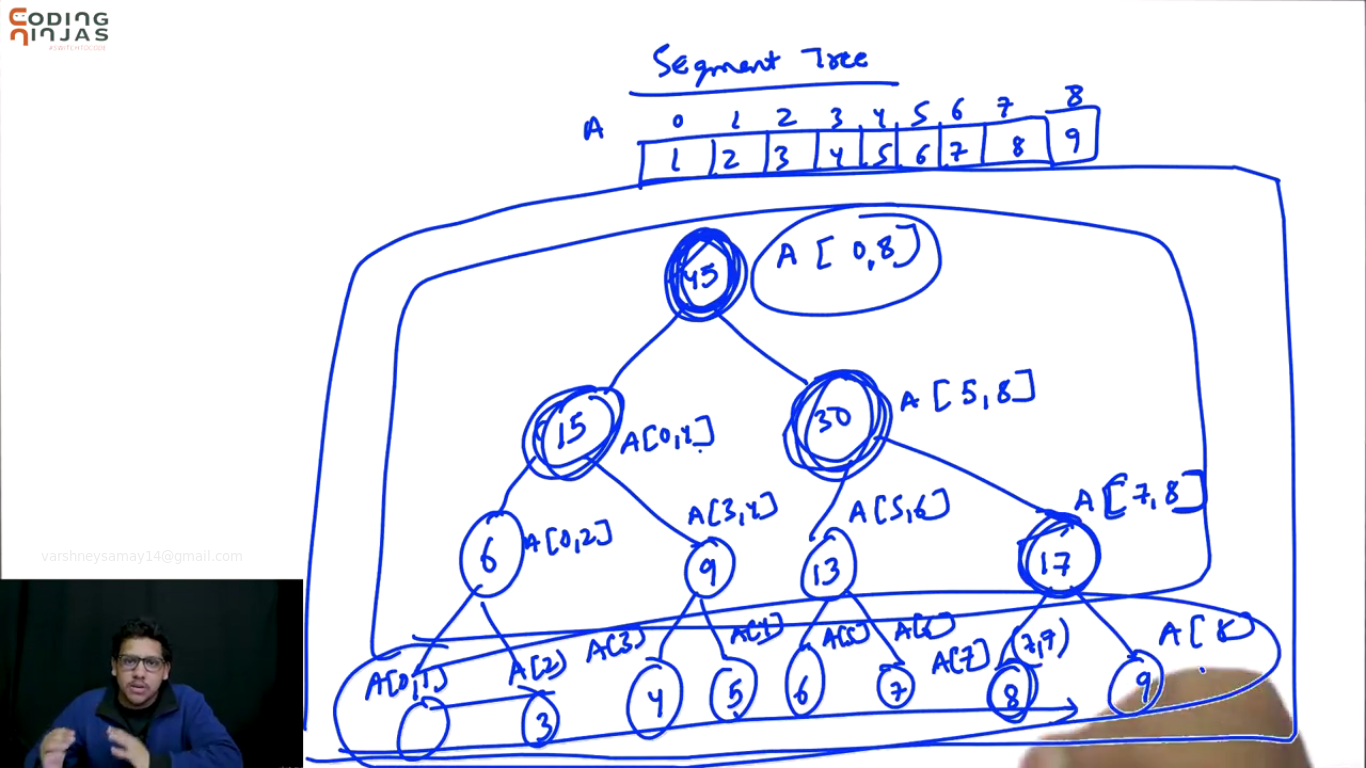 CODING
NINJAS
#SWITCHTOCODE
Segment Tree
0 1 2 3 4 5 6 7 8
A 1 2 3 4 5 6 7 8 9
45 A[0,8]
15 A[0,4] 30 A[5,8]
6 A[0,2] 9 A[3,4] 13 A[5,6] 17 A[7,8]
A[0,1] A[2] A[3] A[4] A[5] A[6] A[7] (7,7) A[8]
3 4 5 6 7 8 9
varshneysamay14@gmail.com